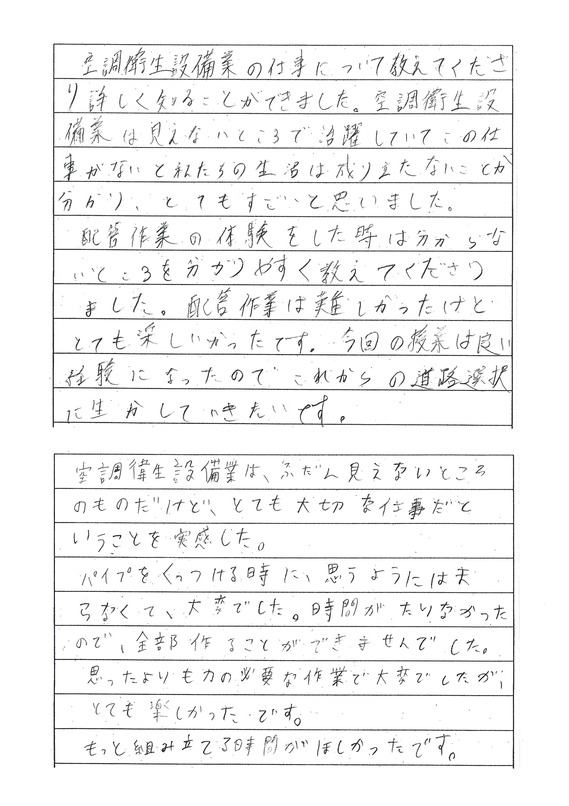 空調衛生設備業の仕事について教えてくださ
り詳しく知ることができました。空調衛生設
備業は見えないところで活躍していてこの仕
事がないと私たちの生活は成り立たないことが
分かり、とてもすごいと思いました。
配管作業の体験をした時は分からな
いところを分かりやすく教えてくださり
ました。配管作業は難しかったけど
とても楽しいかったです。今回の授業は良い
経験になったのでこれからの道路選択
に生かしていきたいです。
空調衛生設備業は、ふだん見えないところ
のものだけど、とても大切な仕事だと
いうことを実感した。
パイプをくっつける時に、思うようには
らなくて、大変でした。時間がたりなかった
ので、全部作ることができませんでした。
思ったよりも力の必要な作業で大変でしたが、
とても楽しかったです。
もっと組み立てる時間がほしかったです。